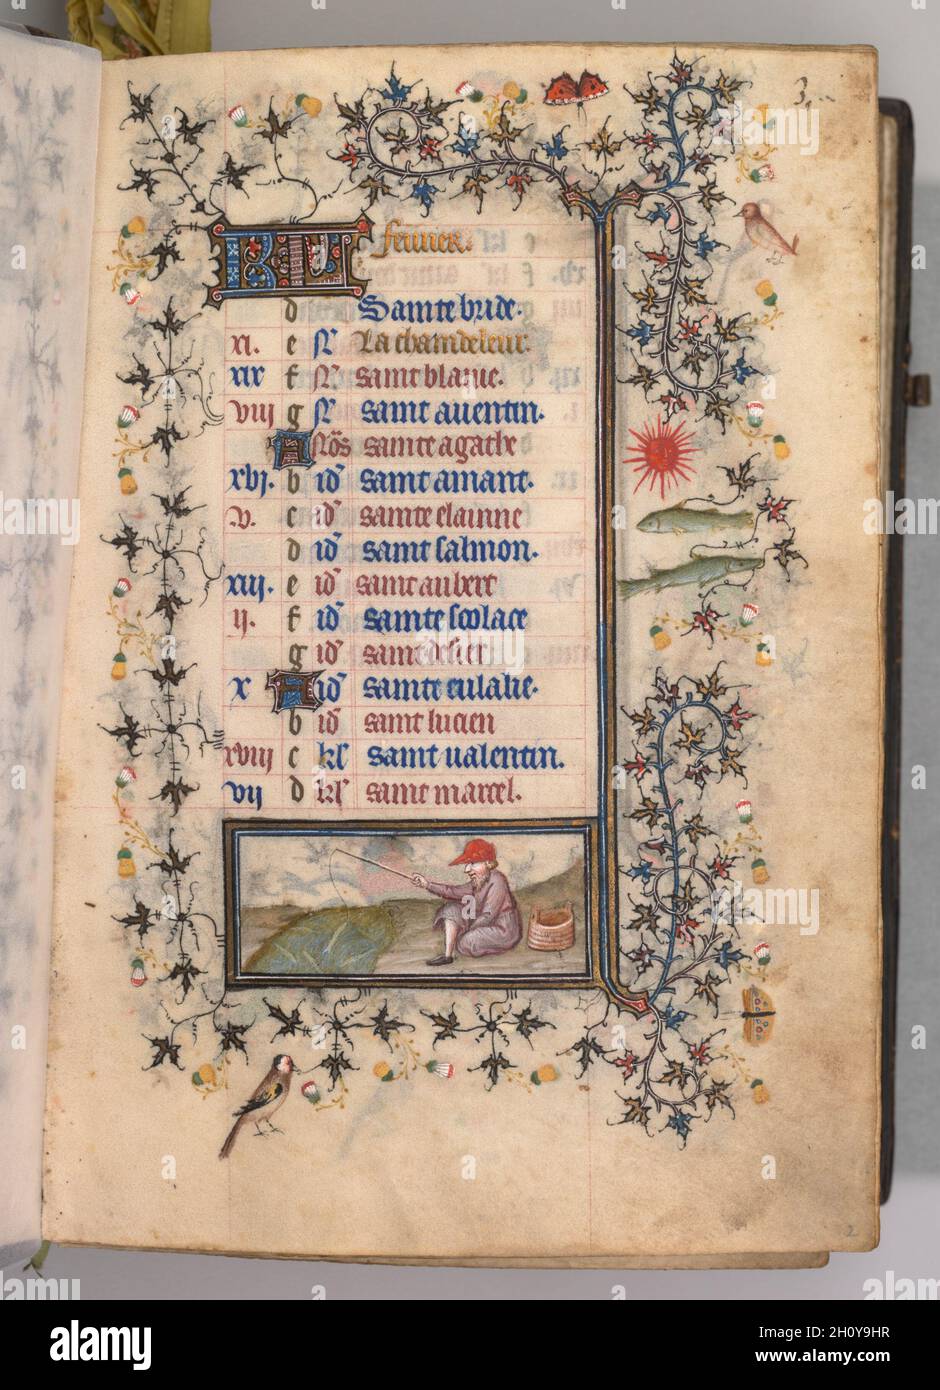 3
KL feurier.
d Sainte bride.
xi. e N La chandeleur.
xix f N saint blaiue.
viii g N saint auentin.
A Nos sainte agathe
xvi. b id saint amant.
v. c id sainte elainne
d id saint salmon.
xiii. e id saint aubert
ii. f id sainte scolace
g id saint desier
x A id sainte eulalie.
b id saint lucien
xviii c kl saint ualentin.
vii d kl saint marcel.
2
alamy
Image ID: 2H0Y9HR
www.alamy.com